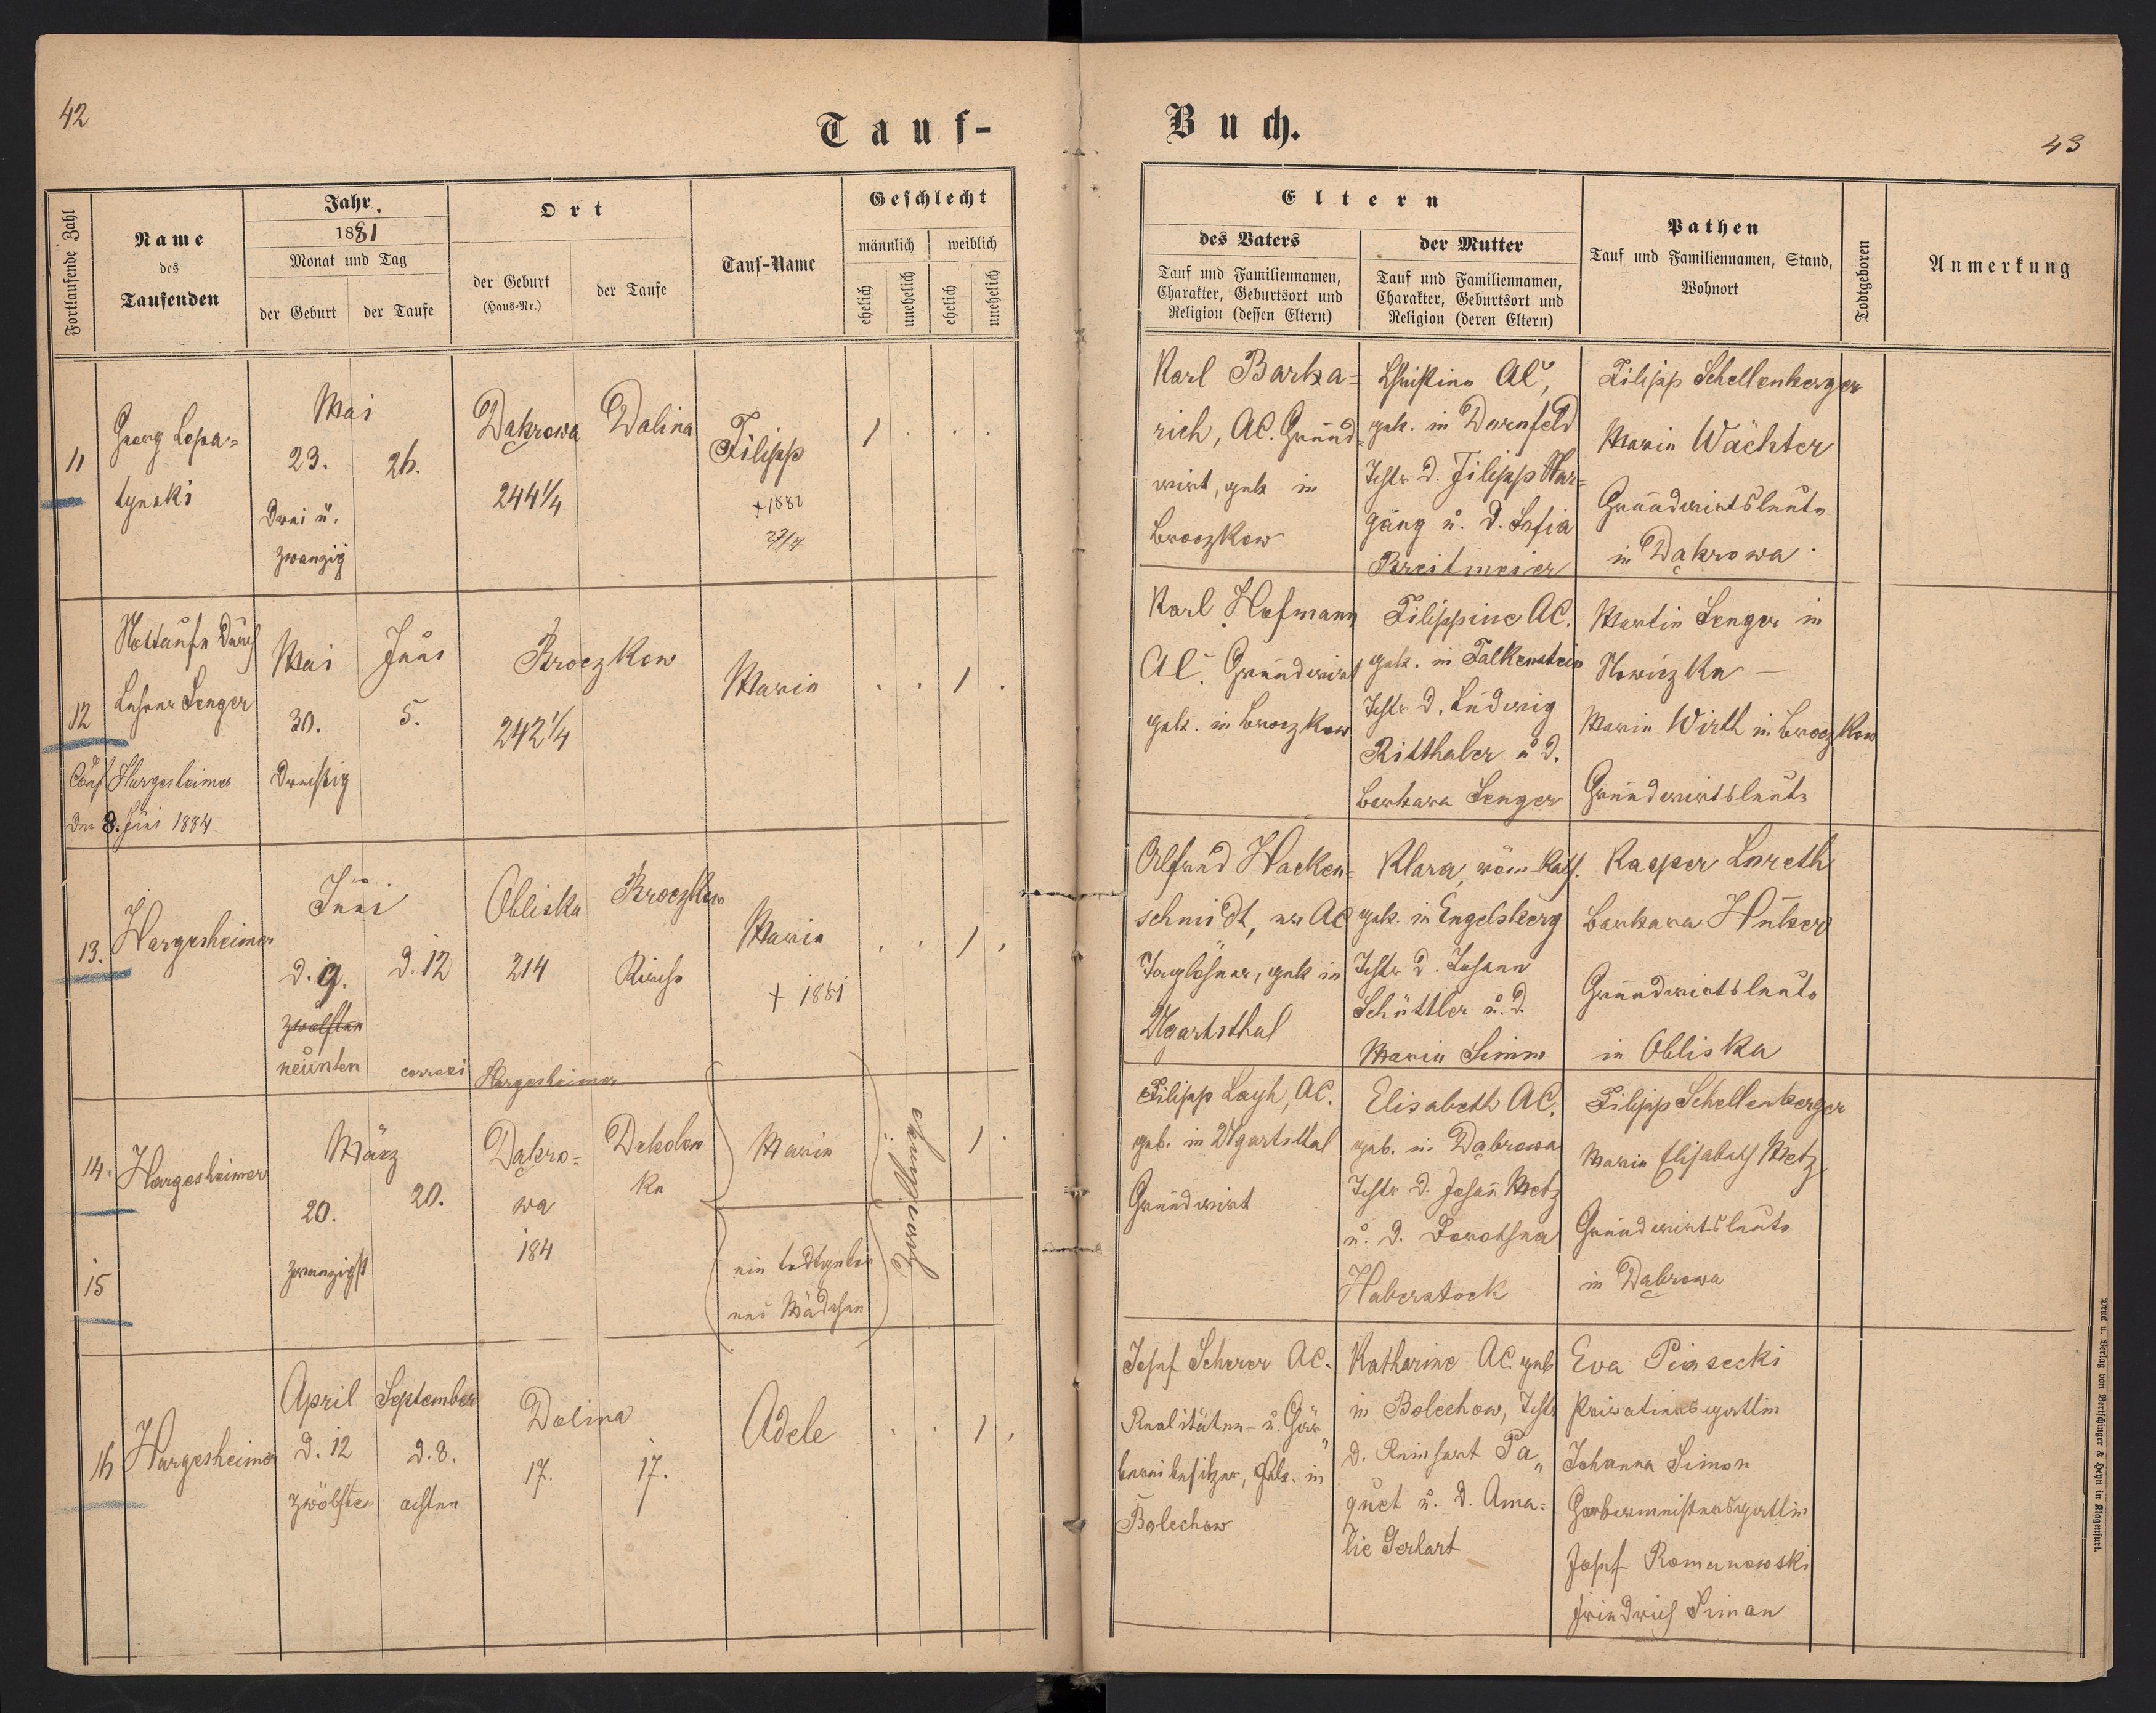 42
Tauf-
Fortlaufende Zahl
Name
des
Taufenden
Jahr.
1881
Monat und Tag
der Geburt
der Taufe
Ort
der Geburt
(Haus-Nr.)
der Taufe
Tauf-Name
Geschlecht
männlich
weiblich
ehelich
unehelich
ehelich
unehelich
11
Georg Lopa=
tynski
Mai
23.
26.
Drei u.
zwanzig
Dąbrowa
244 1/4
Dolina
Filipp
+ 1882
27/7
1 . . .
12
Nottaufe durch
Lehrer Senger
Conf. Hargesheimer
den 8. Juni 1884
Mai
30.
Dreißig
Juni
5.
Broczkow
242 1/4
Marie
. . 1 .
13.
Hargesheimer
Juni
d. 9.
d. 12
zwölften
neunten
correxi Hargesheimer
Obliska
214
Broczkow
Kirche
Marie
+ 1881
. . 1 .
14.
Hargesheimer
März
20.
20.
zwanzigst
Dąbro=
wa
184
Debolow
ka
Marie
1 .
Zwillinge
15
ein todtgebor
nes Mädchen
16
Hargesheimer
April
d. 12
zwölften
September
d. 8.
achten
Dolina
17.
17.
Adele
. . 1 .
Buch.
43
Eltern
des Vaters
Tauf und Familiennamen,
Charakter, Geburtsort und
Religion (dessen Eltern)
der Mutter
Tauf und Familiennamen,
Charakter, Geburtsort und
Religion (deren Eltern)
Pathen
Tauf und Familiennamen, Stand,
Wohnort
Todtgeboren
Anmerkung
Karl Barba=
rich, AC. Grund=
wirt, geb. in
Broczkow
Christine AC,
geb. in Dornfeld
Tchtr d. Filipp Mar=
gang u. d. Sofia
Breitmeier
Filipp Schellenberger
Marie Wächter
Grundwirtsleute
in Dąbrowa.
Karl Hofmann
AC. Grundwirt
geb. in Broczkow
Filippine AC.
geb. in Falkenstein
Tchtr d. Ludwig
Ritthaler u. d.
Barbara Senger
Martin Senger in
Nowiczka —
Marie Wirth in Broczkow
Grundwirtsleute
Wacken=
schmidt, AC
Taglöhner, geb. in
Ugartsthal
Klara, röm. kath.
geb. in Engelsberg
Tchtr d. Johann
Schüttler u. d.
Marie Simm
Kasper Loreth
Barbara Huber
Grundwirtsleute
in Obliska
Filipp Layh, AC.
geb. in Ugartsthal
Grundwirt
Elisabeth AC.
geb. in Dąbrowa
Tchtr d. Johañ Metz
u. d. Dorothea
Haberstock
Filipp Schellenberger
Marie Elisabeth Metz
Grundwirtsleute
in Dąbrowa
Josef Scherer AC.
Realitäten- u. Gär„
bereibesitzer, geb. in
Bolechow
Katharine AC. geb
in Bolechow, Tchtr
d. Reinhart Pa„
quet u. d. Ama=
lie Gerhart
Eva Piasecki
Privatiersgattin
Johanna Simon
Gerbermeistersgattin
Josef Romanowski
Friedrich Siman
Druck u. Verlag von Bertschinger & Heyn in Klagenfurt.